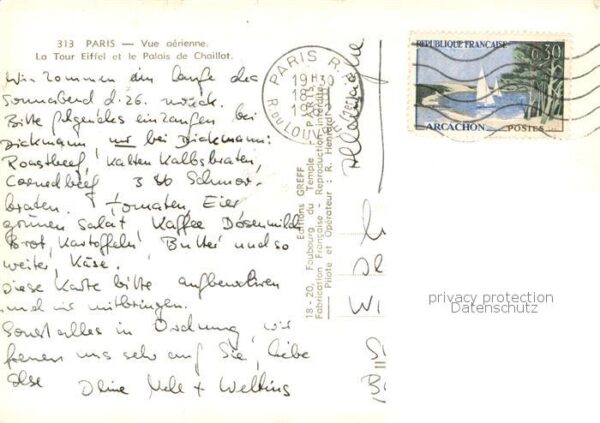 313 PARIS — Vue aérienne.
La Tour Eiffel et le Palais de Chaillot.
Wir kommen im Laufe des
Sonnabend d. 26. zurück.
Bitte folgendes einkaufen bei
Dickmann nur bei Dickmann:
Roastbeef, kalten Kalbsbraten,
Cornedbeef 3 Schmor-
braten. Tomaten, Eier
grünen Salat, Kaffee Dosenmilch
Brot, Kartoffeln, Butter und so
weiter, Käse.
Diese Karte bitte aufbewahren
und mir mitbringen.
Sonst alles in Ordnung, wir
freuen uns sehr auf Sie, liebe
Else
Allemagne
PARIS R.P.
19H30
R. DU LOUVRE
RÉPUBLIQUE FRANÇAISE
0,30
ARCACHON
POSTES
Éditions GREFF
18 - 20, Faubourg du Temple - PARIS
Fabrication Française - Reproduction interdite
Pilote et Opérateur : R. Henrard
privacy protection
Datenschutz